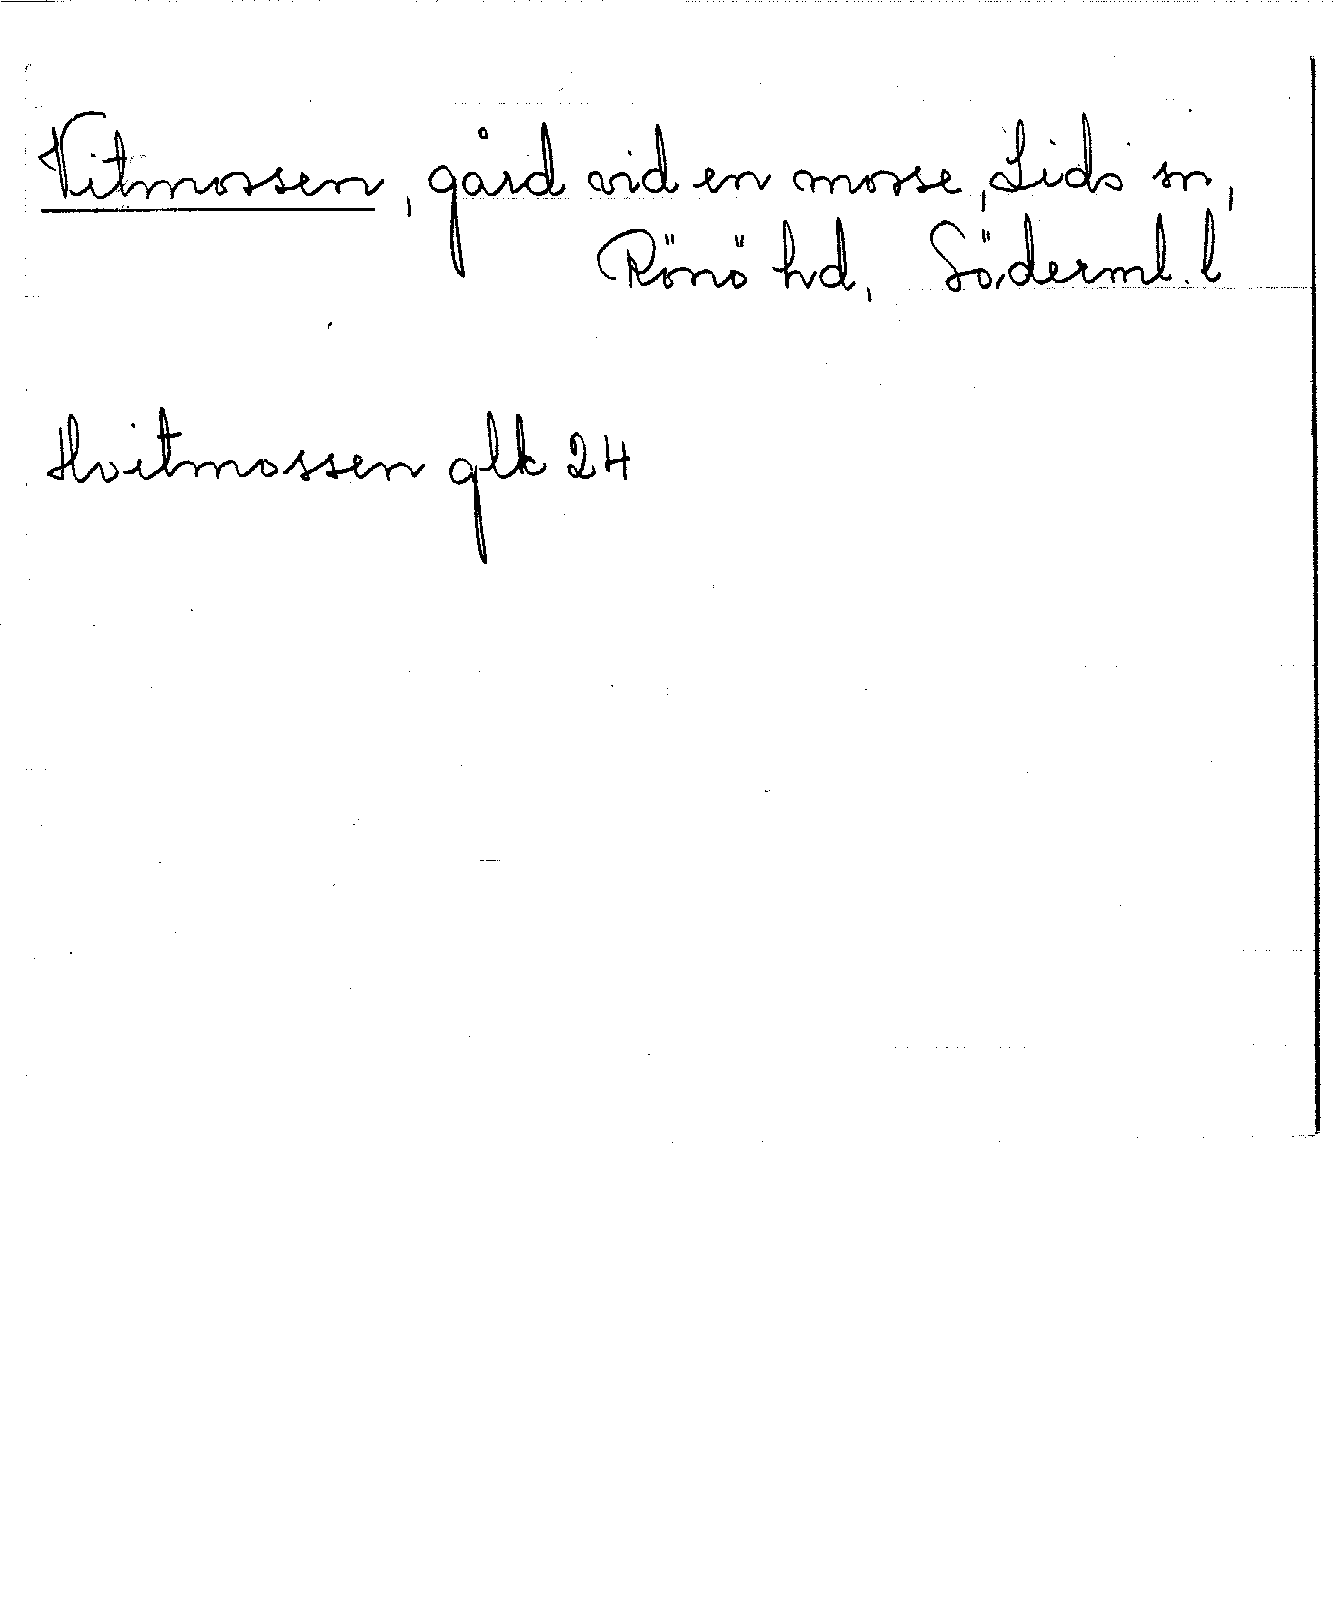 Vitmossen, gård vid en mosse, Lids sn,
Rönö hd, Söderml. l
Hvitmossen glk 24